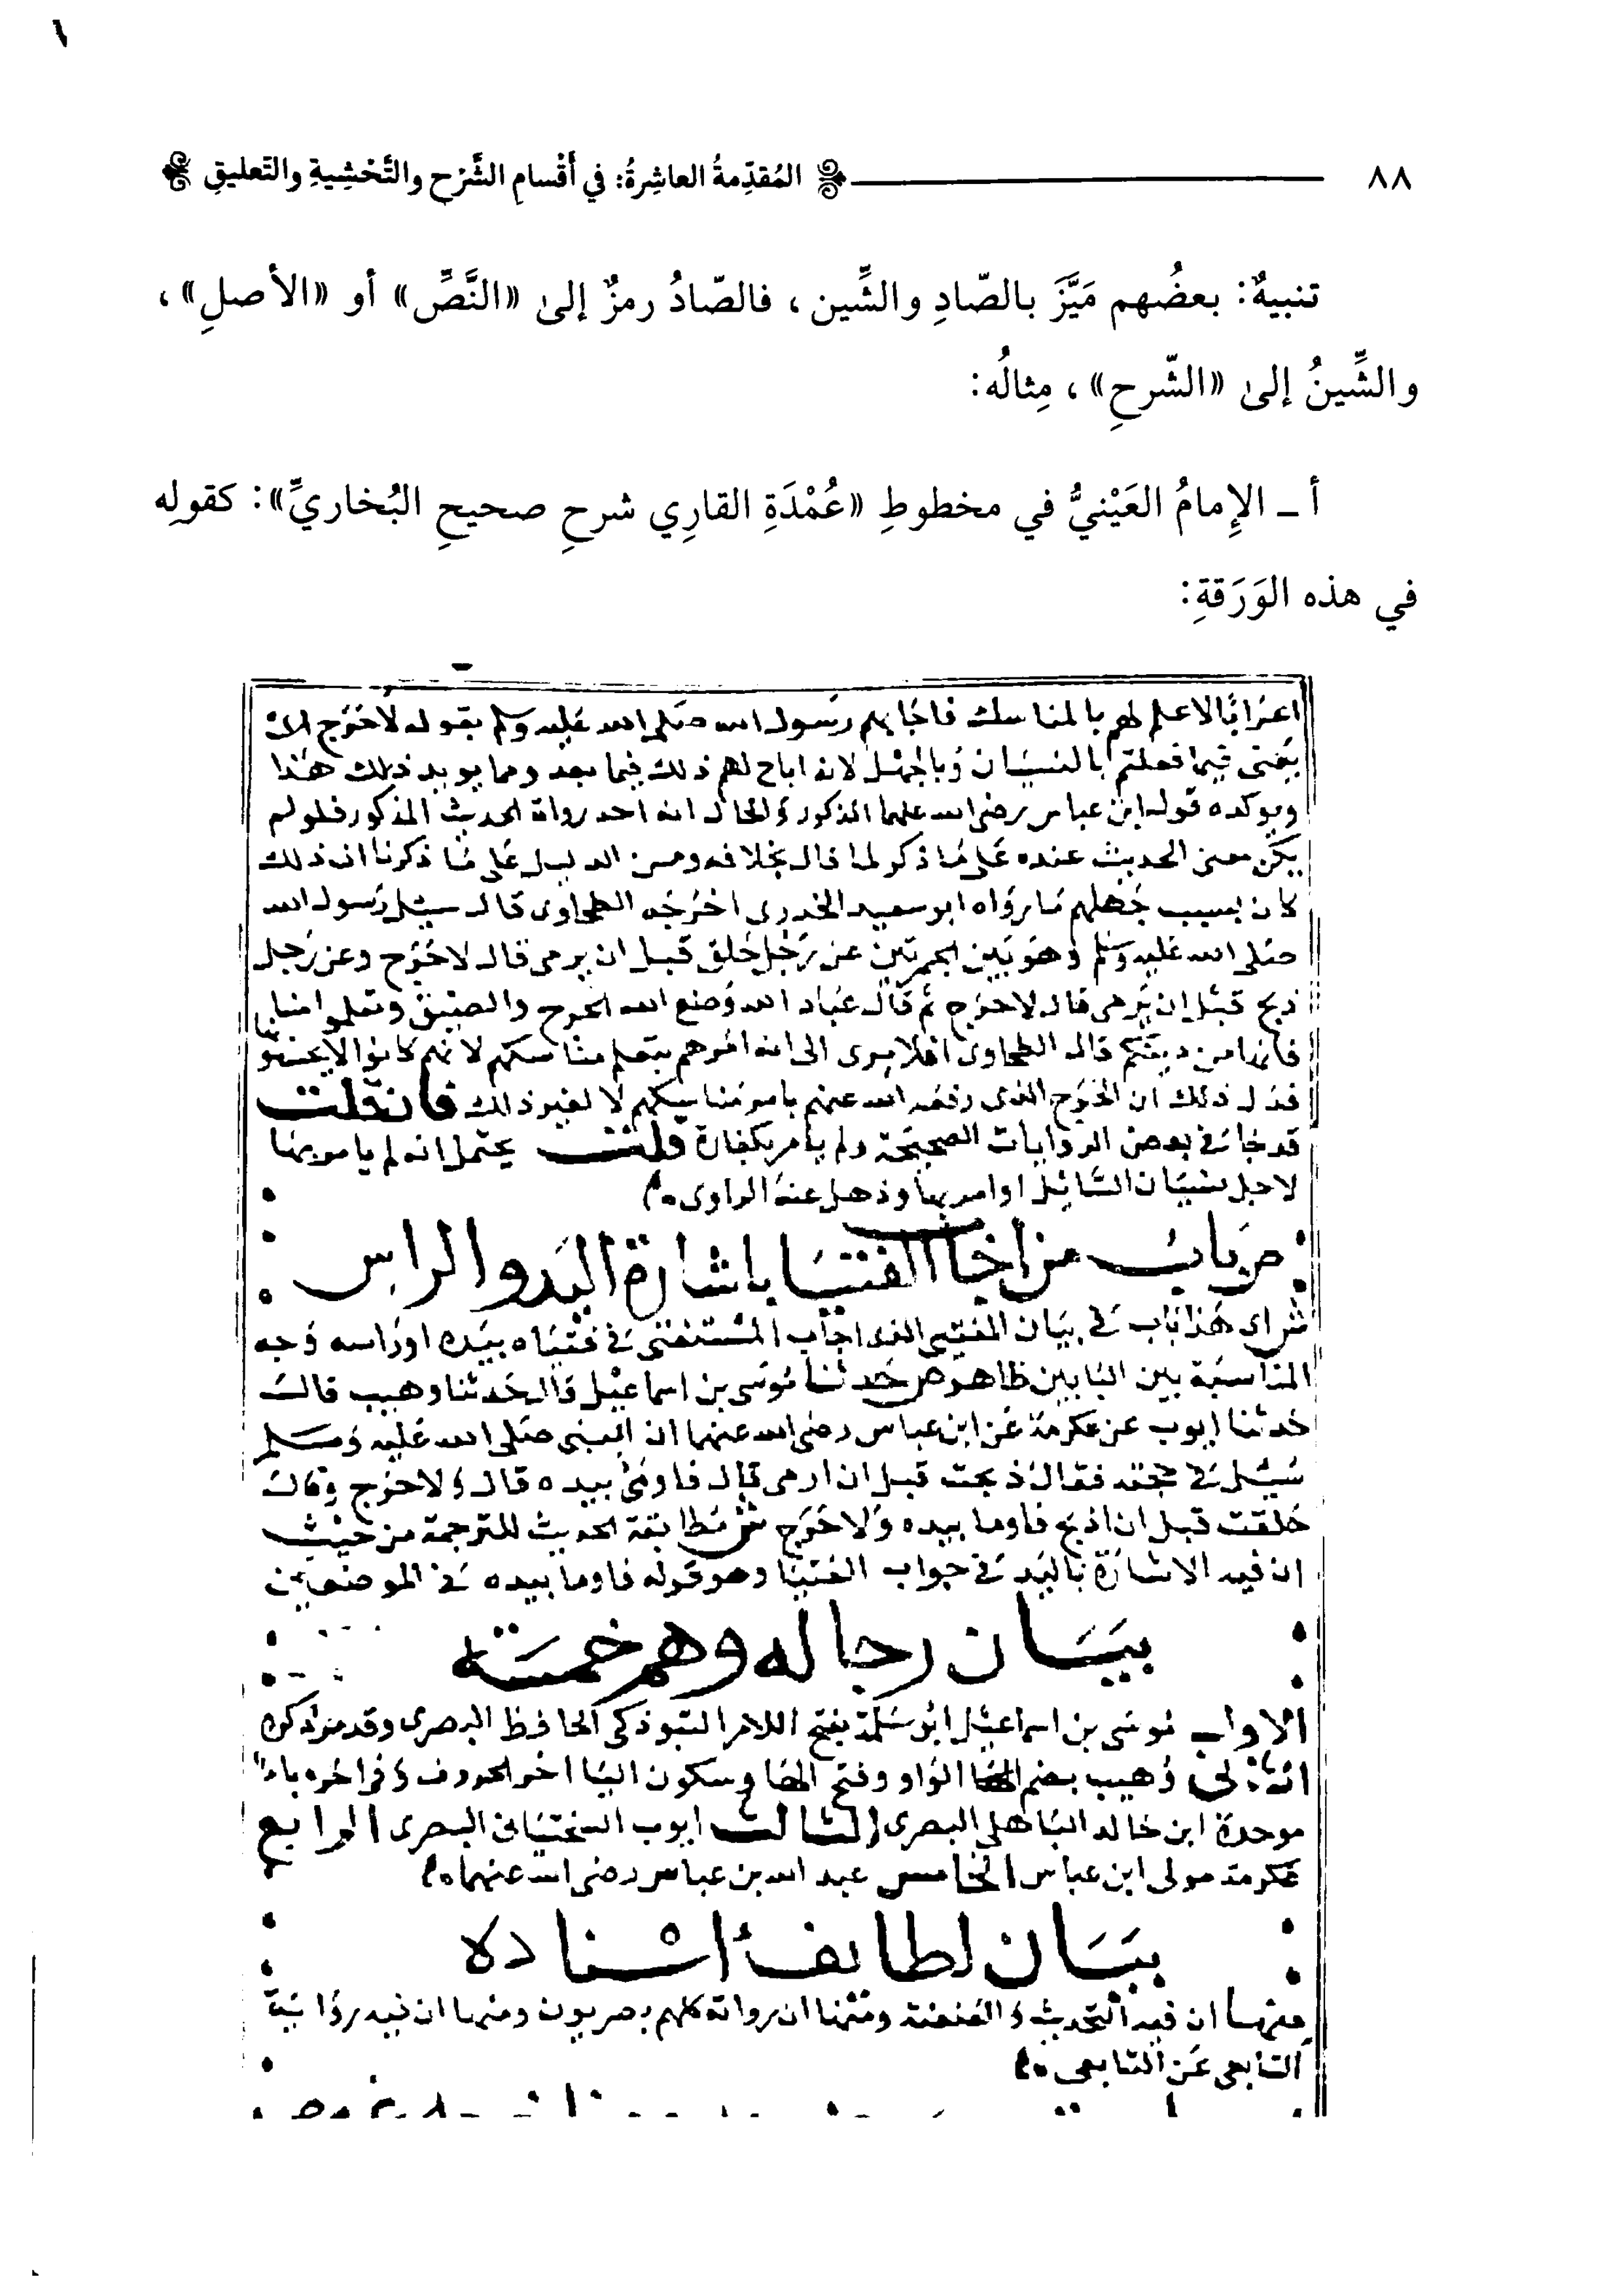 ٨٨ المُقدِّمةُ العاشِرةُ: في أَقْسامِ الشَّرْحِ والتَّحْشِيةِ والتَعليقِ
تنبيهٌ: بعضُهم مَيَّزَ بالصّادِ والشِّين، فالصّادُ رمزٌ إلىٰ «النَّصِّ» أو «الأصلِ»،
والشِّينُ إلىٰ «الشّرحِ»، مِثالُه:
أ ـ الإِمامُ العَيْنيُّ في مخطوطِ «عُمْدَةِ القارِي شرحِ صحيحِ البُخاريِّ»: كقولِه
في هذه الوَرَقةِ:
اعرابا لا علم لهم بالمناسك فاجابهم رسول الله صلى الله عليه وسلم بقوله لا حرج الان
يعنى فيما فعلتم بالنسيان وبالجهل لانه اباح لهم ذلك فيما بعد ومما يويد ذلك هذا
ويوكده قول ابن عباس رضى الله عنهما المذكور والحال انه احد رواة الحديث المذكور فلو لم
يكن معنى الحديث عنده على ما ذكر لما قال بخلافه ومن الدليل على ما ذكرنا ان ذلك
كان بسبب جهلهم ما رواه ابو سعيد الخدرى اخرجه الطحاوى قال سيل رسول الله
صلى الله عليه وسلم وهو بين الجمرتين عن رجل حلق قبل ان يرمى قال لا حرج وعن رجل
ذبح قبل ان يرمى قال لا حرج ثم قال عباد الله وضع الله الحرج والضيق وتعلموا مناسككم
فانها من دينكم قال الطحاوى افلا يرى الى انه امرهم بتعلم مناسكهم لانهم كانوا لا يحسنونها
فدل ذلك ان الحرج الذى رفعه الله عنهم بامر مناسكهم لا لغير ذلك فان قلت
قد جا فى بعض الروايات الصحيحة ولم يامر بكفارة قلت يحتمل انه لم يامر بها
لاجل نسيان السائل او امر بها وذهل عنه الراوى
ص باب من اجاب الفتيا باشارة اليد والراس
ش اى هذا باب فى بيان المفتى الذى اجاب المستفتى فى فتياه بيده او راسه وجه
المناسبة بين البابين ظاهر ص حدثنا موسى بن اسماعيل قال حدثنا وهيب قال
حدثنا ايوب عن عكرمة عن ابن عباس رضى الله عنهما ان النبى صلى الله عليه وسلم
سيل فى حجته فقال ذبحت قبل ان ارمى قال فاومى بيده قال ولا حرج وقال
حلقت قبل ان اذبح فاوما بيده ولا حرج ش مطابقة الحديث للترجمة من حيث
ان فيه الاشارة باليد فى جواب الفتيا وهو قوله فاوما بيده فى الموضعين
بيان رجاله وهم خمسة
الاول موسى بن اسماعيل ابو سلمة بفتح اللام التبوذكى الحافظ البصرى وقد مر ذكره
الثانى وهيب بضم الواو وفتح الها وسكون اليا اخر الحروف وفى اخره باء
موحدة ابن خالد الباهلى البصرى الثالث ايوب السختيانى البصرى الرابع
عكرمة مولى ابن عباس الخامس عبد الله بن عباس رضى الله عنهما
بيان لطايف اسناده
منها ان فيه التحديث والعنعنة ومنها ان رواته كلهم بصريون ومنها ان فيه رواية
التابعى عن التابعى